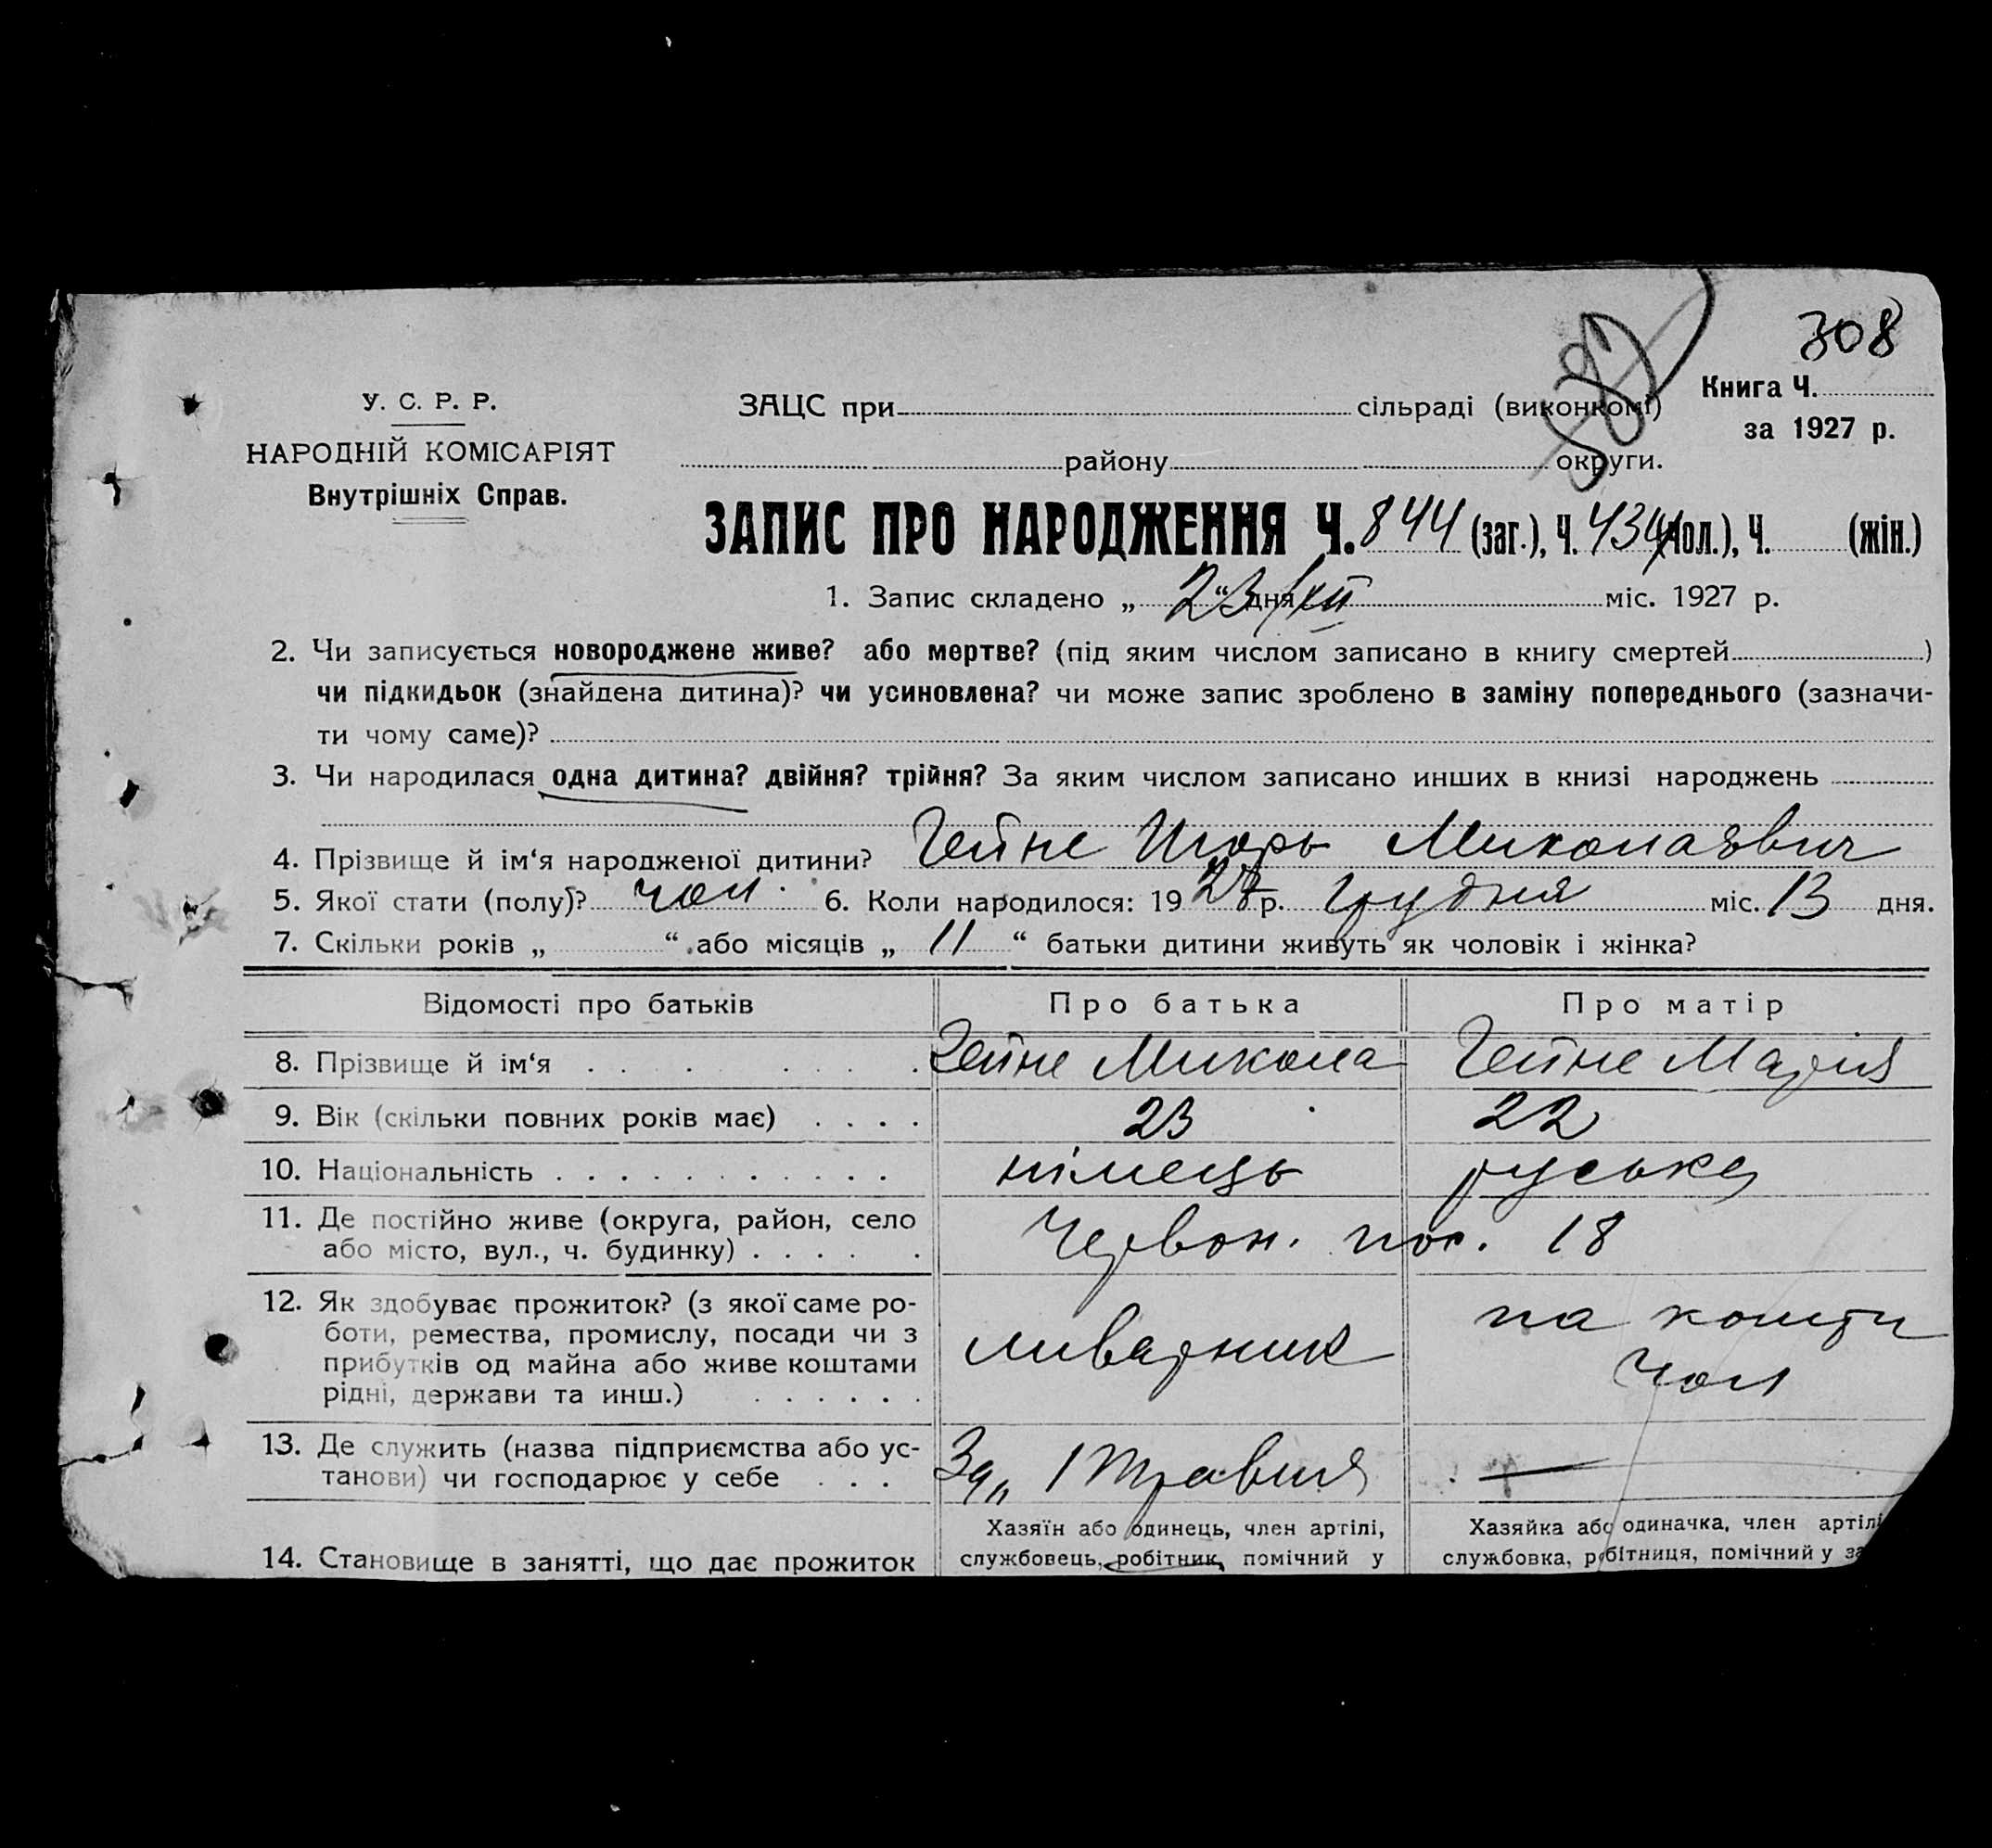 308
582
У. С. Р. Р.
НАРОДНІЙ КОМІСАРІЯТ
Внутрішніх Справ.
ЗАЦС при сільраді (виконкомі)
району округи.
Книга Ч.
за 1927 р.
ЗАПИС ПРО НАРОДЖЕННЯ Ч. 844 (заг.), Ч. 434 (чол.), Ч. (жін.)
1. Запис складено „ 23 “ дня XII міс. 1927 р.
2. Чи записується новороджене живе? або мертве? (під яким числом записано в книгу смертей )
чи підкидьок (знайдена дитина)? чи усиновлена? чи може запис зроблено в заміну попереднього (зазначи-
ти чому саме)?
3. Чи народилася одна дитина? двійня? трійня? За яким числом записано инших в книзі народжень
4. Прізвище й ім‘я народженої дитини? Гейне Игорь Миколаявич
5. Якої стати (полу)? чол. 6. Коли народилося: 1927 р. грудня міс. 13 дня.
7. Скільки років „ “ або місяців „ 11 “ батьки дитини живуть як чоловік і жінка?
Відомості про батьків Про батька Про матір
8. Прізвище й ім‘я Гейне Микола Гейне Марія
9. Вік (скільки повних років має) 23 22
10. Національність німець руська
11. Де постійно живе (округа, район, село
або місто, вул., ч. будинку) Червон. пос. 18
12. Як здобуває прожиток? (з якої саме ро-
боти, ремества, промислу, посади чи з
прибутків од майна або живе коштами
рідні, держави та инш.) ливарник на кошти
чол
13. Де служить (назва підприємства або ус-
танови) чи господарює у себе Зав 1 Травня —
14. Становище в занятті, що дає прожиток
Хазяїн або одинець, член артілі,
службовець, робітник, помічний у
Хазяйка або одиначка, член артілі
службовка, робітниця, помічний у за